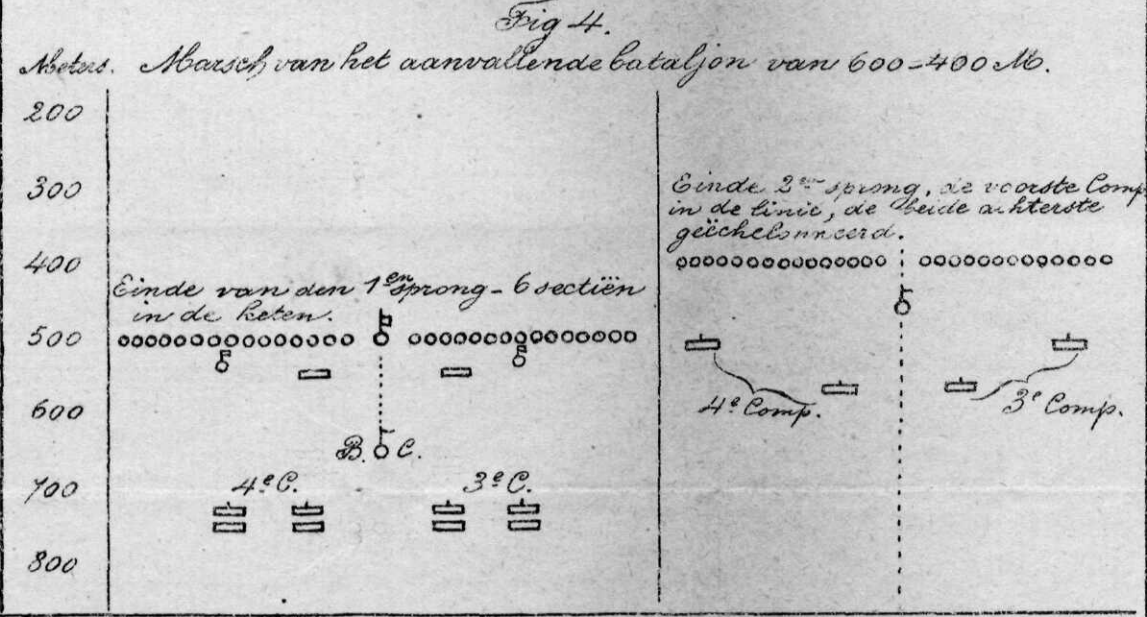 Fig 4.
Meters. Marsch van het aanvallende bataljon van 600-400 M.
200
300
400
500
600
700
800
Einde van den 1en sprong - 6 sectiën
in de keten.
B. C.
4e C. 3e C.
Einde 2en sprong, de voorste Comp.
in de linie, de beide achterste
geëchelonneerd.
4e Comp. 3e Comp.